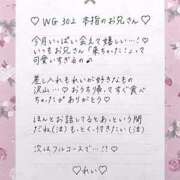 ♡ WG 302 本指のお兄さん ♡
今月いっぱい会えて嬉しい…!♡
いつもお兄さん「来ちゃった!」って
可愛いすぎるの
差し入れもれいが好きなもの
沢山… おうち帰ってすぐ食べ
ちゃたよ ありがとう♡
ほんとお話してるとあっという間
だね(泣)もっとイてさたい(泣)
次はフルコースで…!?
♡れい♡